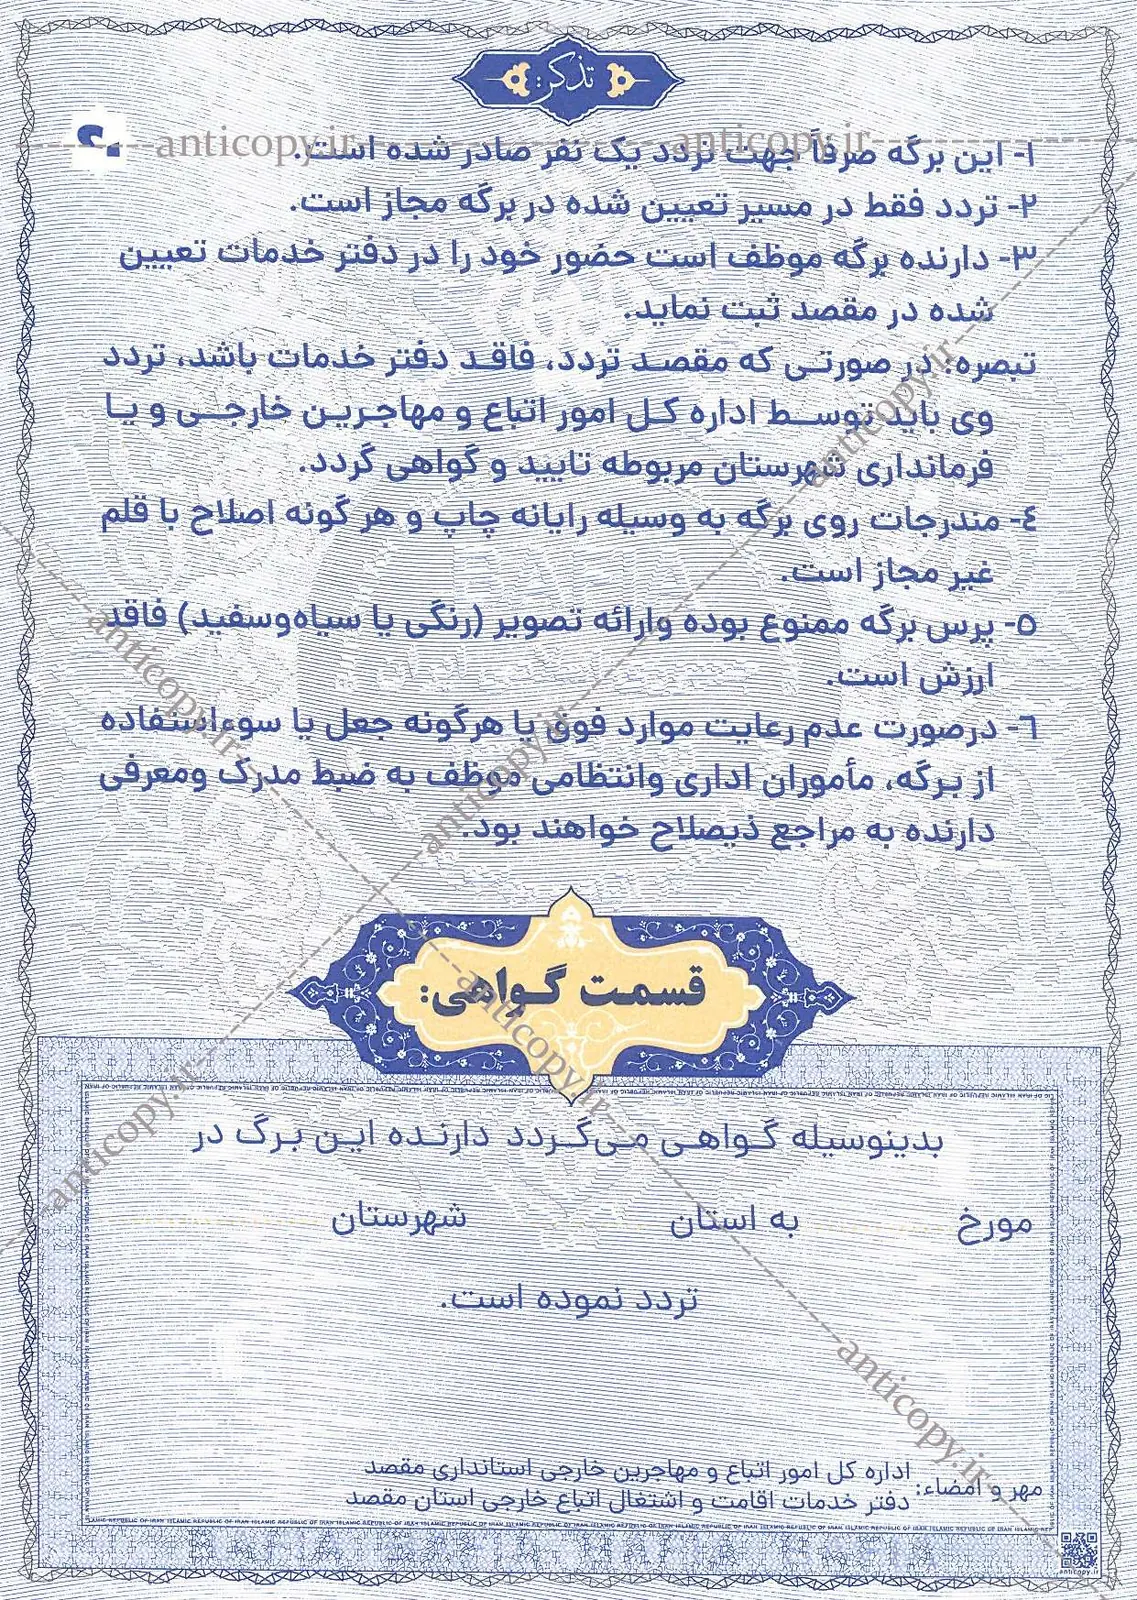 تذکر:
anticopy.ir
anticopy.ir
۱- این برگه صرفاً جهت تردد یک نفر صادر شده است.
۲- تردد فقط در مسیر تعیین شده در برگه مجاز است.
۳- دارنده برگه موظف است حضور خود را در دفتر خدمات تعیین
شده در مقصد ثبت نماید.
تبصره: در صورتی که مقصد تردد، فاقد دفتر خدمات باشد، تردد
وی باید توسط اداره کل امور اتباع و مهاجرین خارجی و یا
فرمانداری شهرستان مربوطه تایید و گواهی گردد.
anticopy.ir
٤- مندرجات روی برگه به وسیله رایانه چاپ و هر گونه اصلاح با قلم
غیر مجاز است.
۵- پرس برگه ممنوع بوده وارائه تصویر (رنگی یا سیاه‌وسفید) فاقد
ارزش است.
anticopy.ir
٦- درصورت عدم رعایت موارد فوق یا هرگونه جعل یا سوءاستفاده
از برگه، مأموران اداری وانتظامی موظف به ضبط مدرک ومعرفی
دارنده به مراجع ذیصلاح خواهند بود.
anticopy.ir
قسمت گواهی:
anticopy.ir
anticopy.ir
بدینوسیله گواهی می‌گردد دارنده این برگ در
مورخ به استان شهرستان
تردد نموده است.
anticopy.ir
مهر و امضاء:
اداره کل امور اتباع و مهاجرین خارجی استانداری مقصد
دفتر خدمات اقامت و اشتغال اتباع خارجی استان مقصد
ISLAMIC REPUBLIC OF IRAN
anticopy.ir